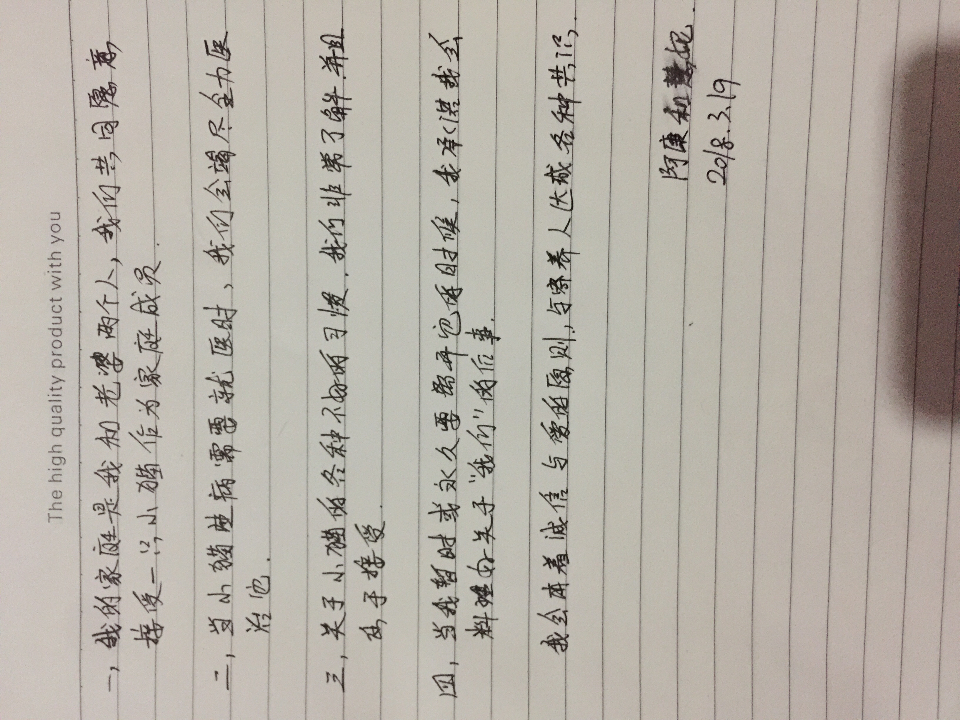 The high quality product with you
一，我的家庭是我和老婆两个人，我们共同愿意
接受一只小猫作为家庭成员.
二，当小猫碰病需要就医时，我们会竭尽全力医
治它.
三，关于小猫的各种不好的习惯，我们非常了解并且
乐于接受.
四，当我暂时或永久要离开它的时候，我承诺我会
料理好关于“我们”的后事.
我会本着诚信与爱的原则，与寄养人达成各种共识，
阿康和慧妮
2018.3.19